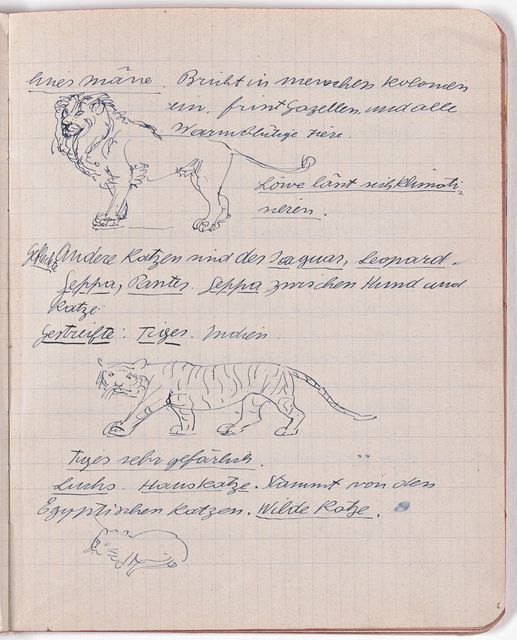 eines mäne Bricht in menschen Kolonien
ein. frist Gazellen und alle
Warmblütige tire.
Löwe länt sich klimati-
sieren.
Gefleckte Andere Katzen sind des Jaguar, Leopard.
Seppa, Pantes. Seppa zwischen Hund und
Katze.
Gestreifte: Tiger. Indien.
Tiger sehr gefärlich.
Luchs. Hauskatze. Stammt von den
Egyptischen Katzen. Wilde Katze.